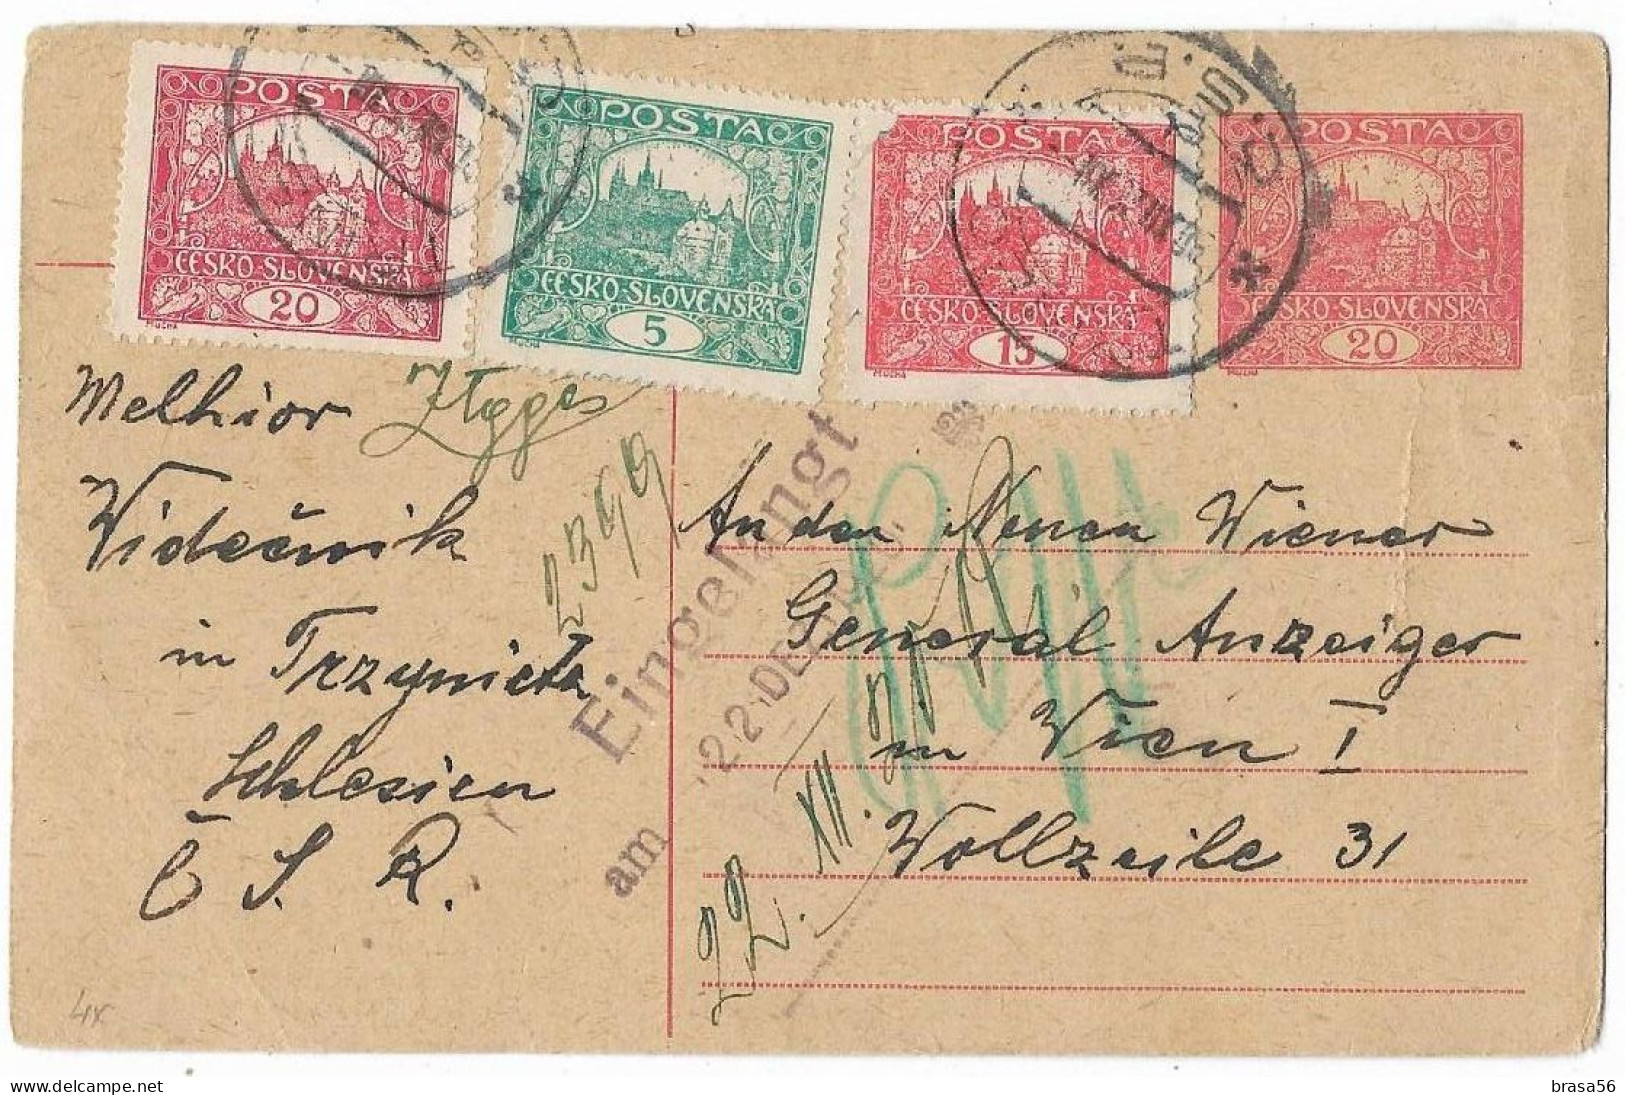 POSTA
ČESKO-SLOVENSKÁ
20
MUCHA
POSTA
ČESKO-SLOVENSKÁ
5
MUCHA
POSTA
ČESKO-SLOVENSKÁ
15
MUCHA
POSTA
ČESKO-SLOVENSKÁ
20
MUCHA
Melhior
Widečnik
in Trzynietz
Schlesien
Č S. R.
2399
Eingelangt
am 22. DEZ.
22. XII.
An den Neuen Wiener
General Anzeiger
in Wien I
Wollzeile 31
brasa56